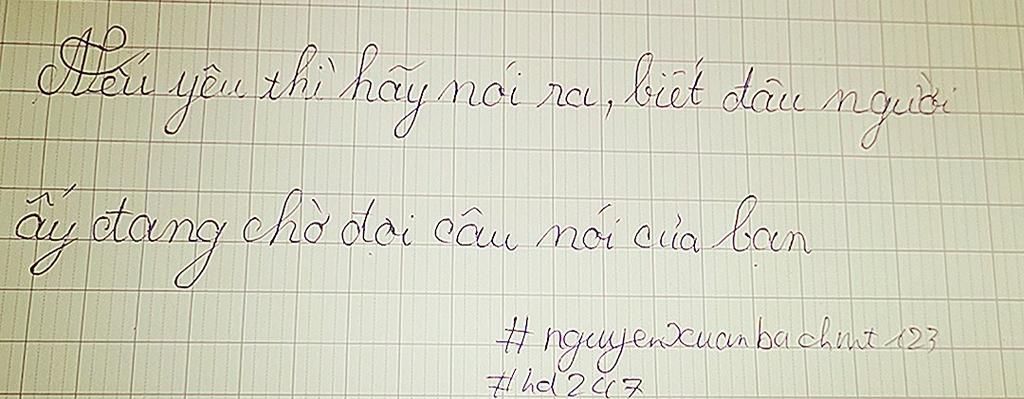 Nếu yêu thì hãy nói ra, biết đâu người
ấy đang chờ đợi câu nói của bạn
#nguyenxuanbachmt123
#hd247